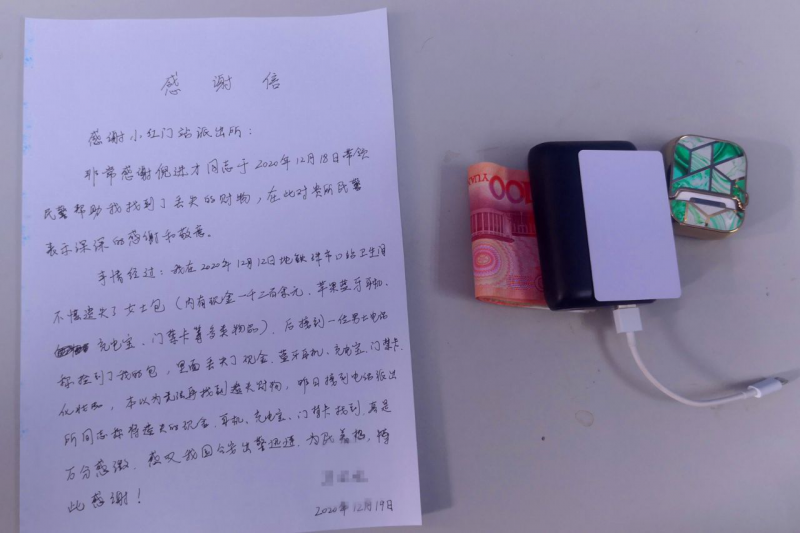 感谢信
感谢小红门站派出所:
非常感谢倪进才同志于2020年12月18日带领
民警帮助我找到了丢失的财物,在此对贵所民警
表示深深的感谢和敬意。
事情经过:我在2020年12月12日地铁珠市口站卫生间
不慎遗失了女士包(内有现金一千三百余元、苹果蓝牙耳机、
充电宝、门禁卡等贵重物品)。后接到一位男士电话
称捡到了我的包,里面丢失了现金、蓝牙耳机、充电宝、门禁卡、
化妆品,本以为无法再找到遗失财物,昨日接到电话派出
所同志称将遗失的现金、耳机、充电宝、门禁卡找到,真是
万分感激,感叹我国公安出警迅速,为民着想,特
此感谢!
2020年12月19日
100
YUAN